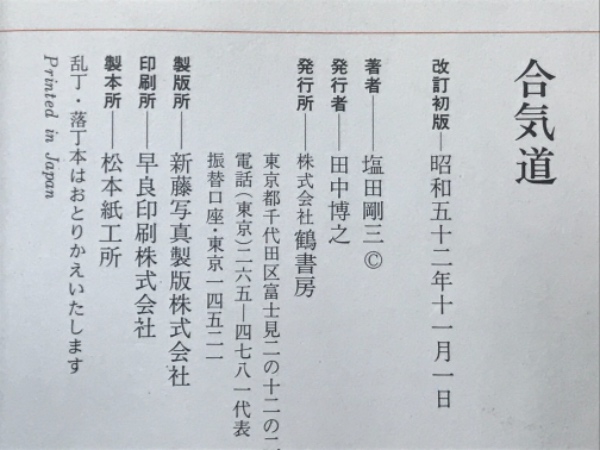 合気道
改訂初版―昭和五十二年十一月一日
著者――塩田剛三©
発行者――田中博之
発行所――株式会社鶴書房
東京都千代田区富士見二の十二の
電話(東京)二六五―四七八一代表
振替口座・東京一四五二一
製版所――新藤写真製版株式会社
印刷所――早良印刷株式会社
製本所――松本紙工所
乱丁・落丁本はおとりかえいたします
Printed in Japan